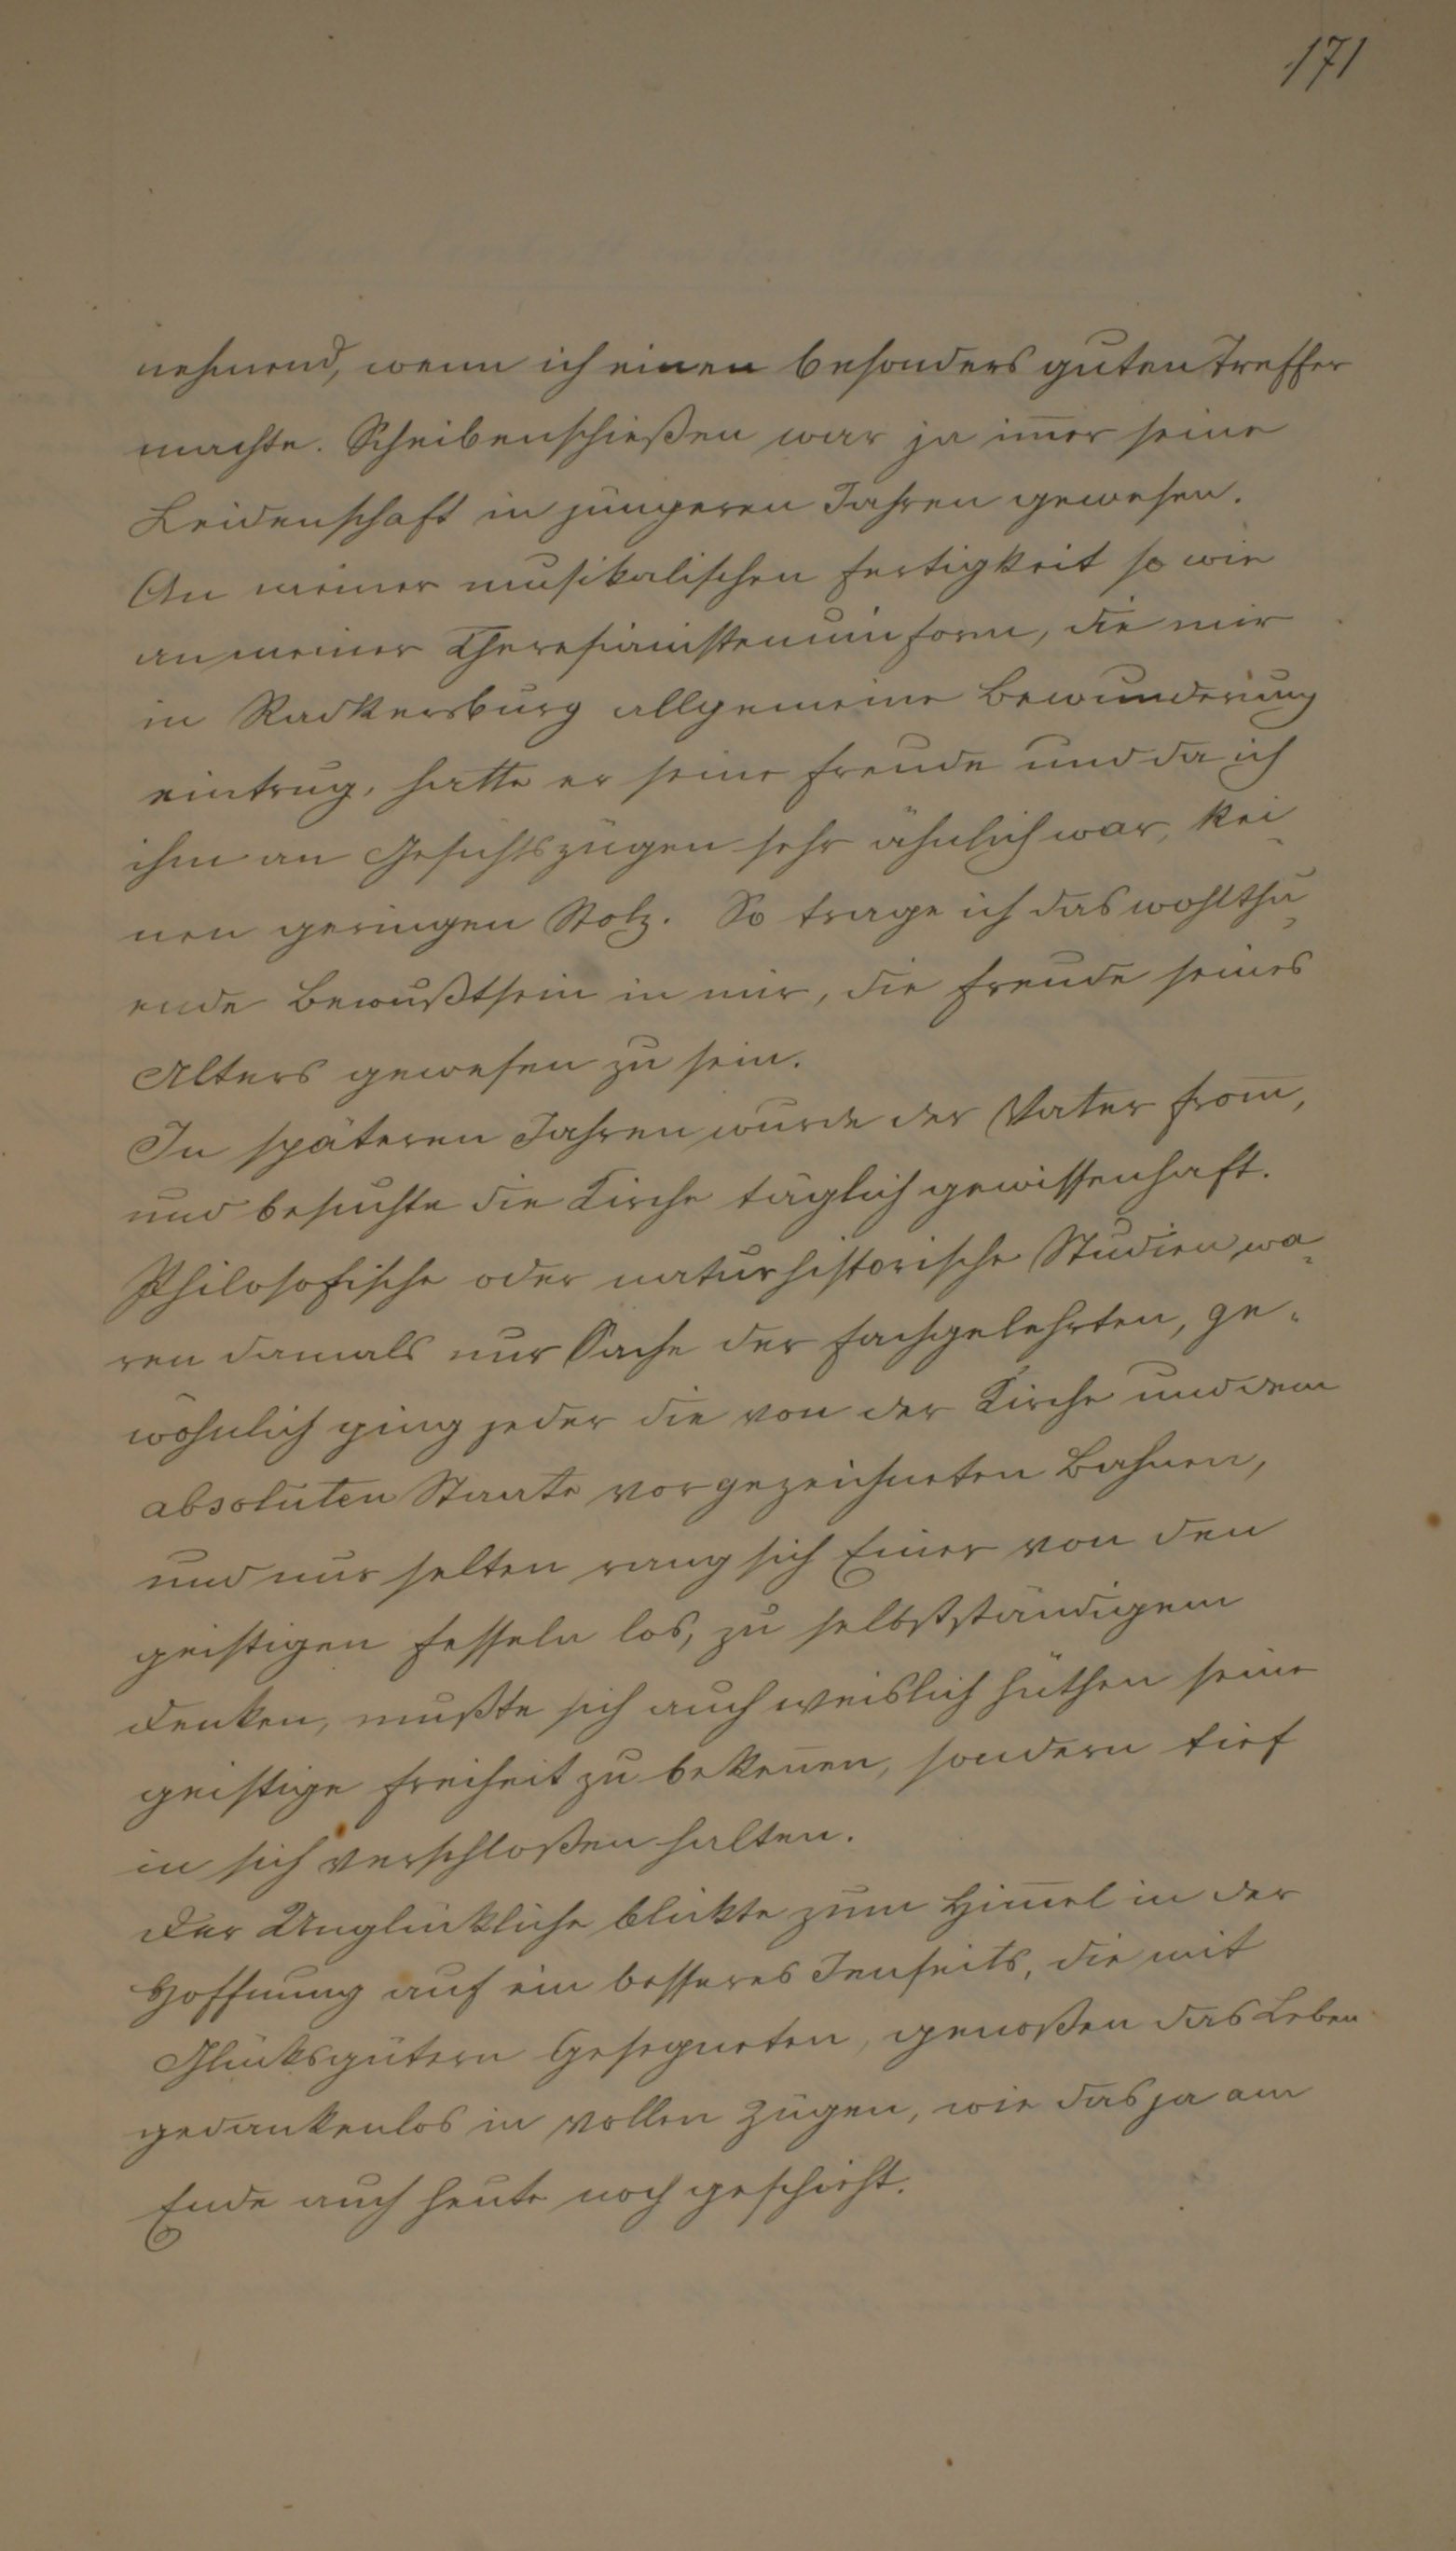 171
nehmend, wenn ich einen besonders guten Treffer
machte. Scheibenschießen war ja im̅er seine
Leidenschaft in jungeren Jahren gewesen.
An meiner musikalischen Fertigkeit so wie
an meiner Theresianistenuniform, die mir
in Radkersburg allgemeine Bewunderung
eintrug, hatte er seine Freude und da ich
ihm an Gesichtszügen sehr ähnlich war, kei-
nen geringen Stolz. So trage ich das wohlthu-
ende Bewußtsein in mir, die Freude seines
Alters gewesen zu sein.
In späteren Jahren wurde der Vater from̅,
und besuchte die Kirche täglich gewissenhaft.
Philosofische oder naturhistorische Studien wa-
ren damals nur Sache der Fachgelehrten, ge-
wöhnlich ging jeder die von der Kirche und dem
absoluten Staate vorgezeichneten Bahnen,
und nur selten rang sich Einer von den
geistigen Fesseln los, zu selbstständigem
Denken, mußte sich auch weislich hüthen seine
geistige Freiheit zu beken̅en, sondern tief
in sich verschloßen halten.
Der Unglückliche blickte zum Him̅el in der
Hoffnung auf ein besseres Jenseits, die mit
Glücksgütern Gesegneten, genoßen das Leben
gedankenlos in vollen Zügen, wie das ja am
Ende auch heute noch geschieht.